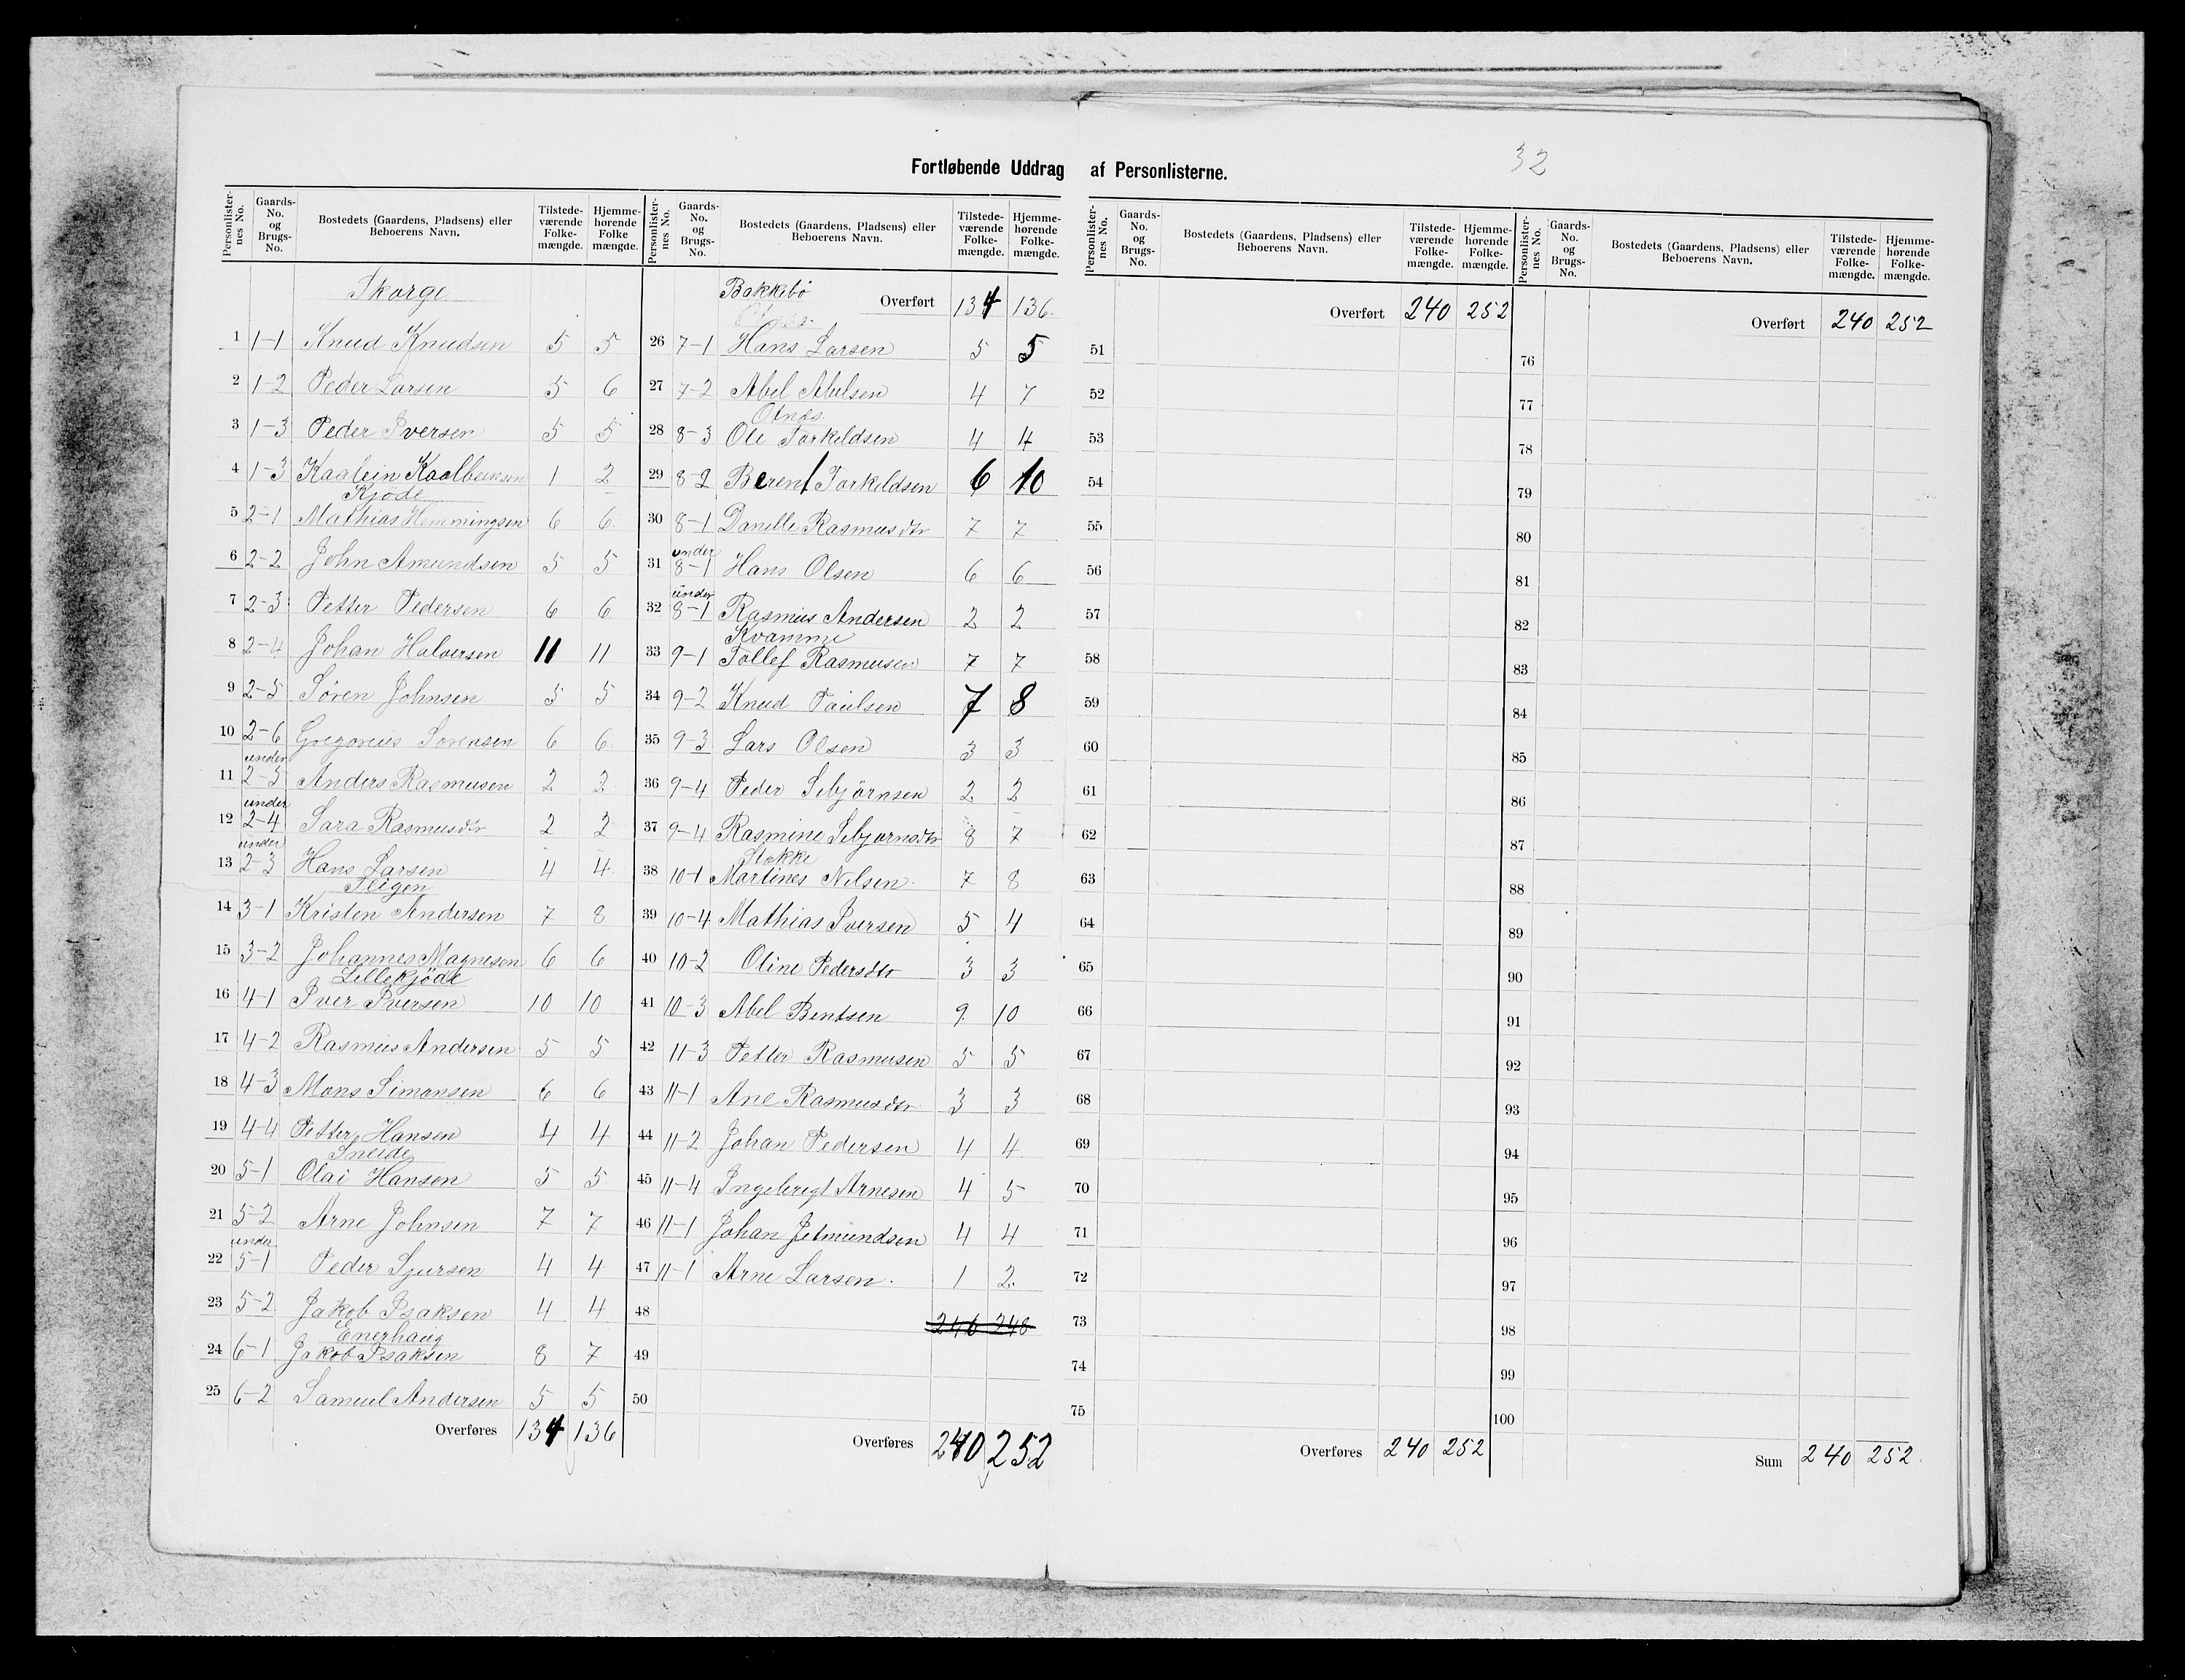 32
Fortløbende Uddrag af Personlisterne.
Personlister-nes No. Gaards-No. og Brugs-No. Bostedets (Gaardens, Pladsens) eller Beboerens Navn. Tilstede-værende Folke-mængde. Hjemme-hørende Folke mængde.
Skorge
1 1-1 Knud Knudsen 5 5
2 1-2 Peder Larsen 5 6
3 1-3 Peder Iversen 5 5
4 1-3 Kaalbein Kaalbeinsen 1 2
Kjøde
5 2-1 Mathias Hemmingsen 6 6
6 2-2 John Amundsen 5 5
7 2-3 Petter Pedersen 6 6
8 2-4 Johan Halvorsen 11 11
9 2-5 Søren Johnsen 5 5
10 2-6 Gregorius Sørensen 6 6
under
11 2-5 Anders Rasmusen 2 2
under
12 2-4 Sara Rasmusdtr 2 2
under
13 2-3 Hans Larsen 4 4
14 3-1 Kristen Andersen 7 8
15 3-2 Johannes Magnesen 6 6
Lillekjöde
16 4-1 Iver Iversen 10 10
17 4-2 Rasmus Andersen 5 5
18 4-3 Mons Simonsen 6 6
19 4-4 Petter Hansen 4 4
Sneide
20 5-1 Olai Hansen 5 5
21 5-2 Arne Johnsen 7 7
under
22 5-1 Peder Sjursen 4 4
23 5-2 Jakob Isaksen 4 4
Enerhaug
24 6-1 Jakob Isaksen 8 7
25 6-2 Samuel Andersen 5 5
Overføres 134 136
Personlister-nes No. Gaards-No. og Brugs-No. Bostedets (Gaardens, Pladsens) eller Beboerens Navn. Tilstede-værende Folke-mængde. Hjemme-hørende Folke-mængde.
Bakkebö Overført 134 136.
26 7-1 Hans Larsen 5 5
27 7-2 Abel Abelsen 4 7
Otnes.
28 8-3 Ole Torkeldsen 4 4
29 8-2 Berent Torkeldsen 6 10
30 8-1 Danelle Rasmusdtr 7 7
under
31 8-1 Hans Olsen 6 6
under
32 8-1 Rasmus Andersen 2 2
Kvamme
33 9-1 Tollef Rasmusen 7 7
34 9-2 Knud Paulsen 7 8
35 9-3 Lars Olsen 3 3
36 9-4 Peder Sebjörnsen 2 2
37 9-4 Rasmine Sebjørnsdtr 8 7
Stokke
38 10-1 Martines Nilsen 7 8
39 10-4 Mathias Iversen 5 4
40 10-2 Oline Pedersdtr 3 3
41 10-3 Abel Bentsen 9. 10
42 11-3 Petter Rasmusen 5 5
43 11-1 Ane Rasmusdtr 3 3
44 11-2 Johan Pedersen 4 4
45 11-4 Ingebregt Arnesen 4 5
46 11-1 Johan Jetmundsen 4 4
47 11-1 Arne Larsen. 1 2.
48 246 248
49
50
Overføres 240 252
Personlister-nes No. Gaards-No. og Brugs-No. Bostedets (Gaardens, Pladsens) eller Beboerens Navn. Tilstede-værende Folke-mængde. Hjemme-hørende Folke-mængde.
Overført 240 252
51
52
53
54
55
56
57
58
59
60
61
62
63
64
65
66
67
68
69
70
71
72
73
74
75
Overføres 240 252
Personlister-nes No. Gaards-No. og Brugs-No. Bostedets (Gaardens, Pladsens) eller Beboerens Navn. Tilstede-værende Folke-mængde. Hjemme-hørende Folke-mængde.
Overført 240 252
76
77
78
79
80
81
82
83
84
85
86
87
88
89
90
91
92
93
94
95
96
97
98
99
100
Sum 240 252.